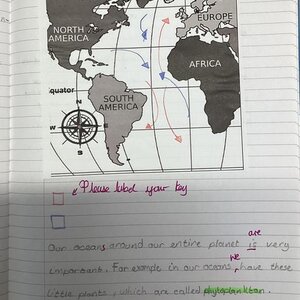 NORTH
AMERICA
EUROPE
AFRICA
quator
SOUTH
AMERICA
N
W
E
S
Please label your key
are
Our oceans around our entire planet is very
we
important. For example in our oceans, have these
little plants, which are called phytoplankton